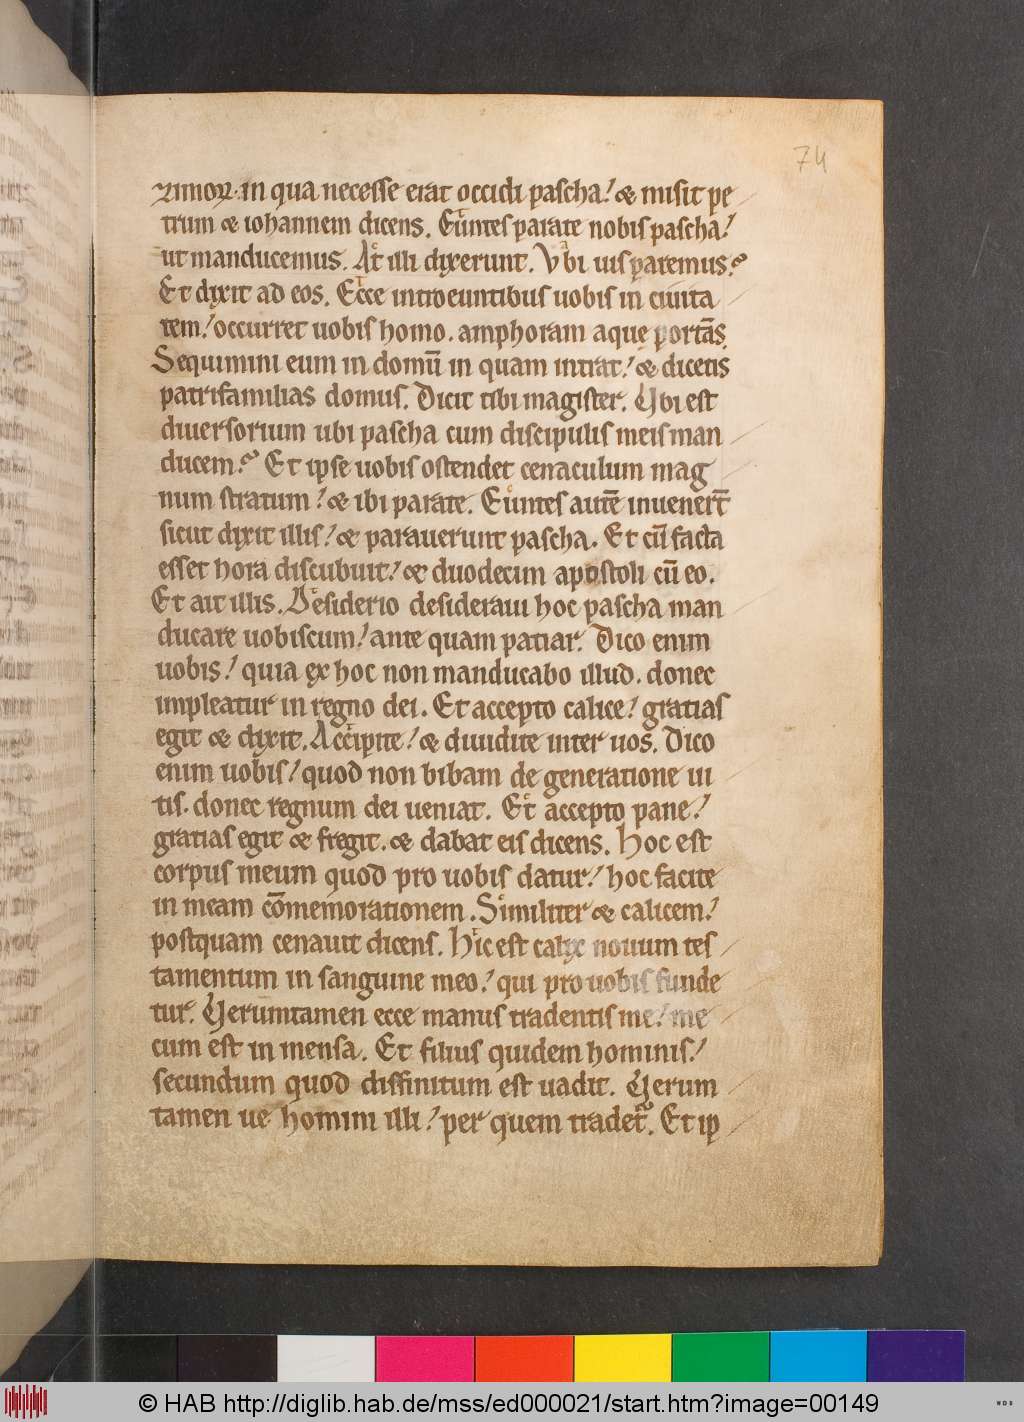 74
zimoꝝ. in qua necesse erat occidi pascha! & misit pe
trum & iohannem dicens. Euntes parate nobis pascha!
ut manducemus. At illi dixerunt. Vbi uis paremus?
Et dixit ad eos. Ecce introeuntibus uobis in ciuita
tem! occurret uobis homo. amphoram aquę portās.
Sequimini eum in domū in quam intrat! & dicetis
patrifamilias domus. Dicit tibi magister. Vbi est
diuersorium ubi pascha cum discipulis meis man
ducem? Et ipse uobis ostendet cenaculum mag
num stratum! & ibi parate. Euntes autē inuenerт̄
sicut dixit illis! & parauerunt pascha. Et cū facta
esset hora discubuit! & duodecim apostoli cū eo.
Et ait illis. Desiderio desideraui hoc pascha man
ducare uobiscum! ante quam patiar. Dico enim
uobis! quia ex hoc non manducabo illud. donec
impleatur in regno dei. Et accepto calice! gratias
egit & dixit. Accipite! & diuidite inter uos. Dico
enim uobis! quod non bibam de generatione ui
tis. donec regnum dei ueniat. Et accepto pane!
gratias egit & fregit. & dabat eis dicens. Hoc est
corpus meum quod pro uobis datur! hoc facite
in meam cōmemorationem. Similiter & calicem!
postquam cenauit dicens. Hic est calix nouum tes
tamentum in sanguine meo! qui pro uobis funde
tur. Verumtamen ecce manus tradentis me! me
cum est in mensa. Et filius quidem hominis!
secundum quod diffinitum est uadit. Verum
tamen ue homini illi! per quem tradet᷑. Et ip
© HAB http://diglib.hab.de/mss/ed000021/start.htm?image=00149